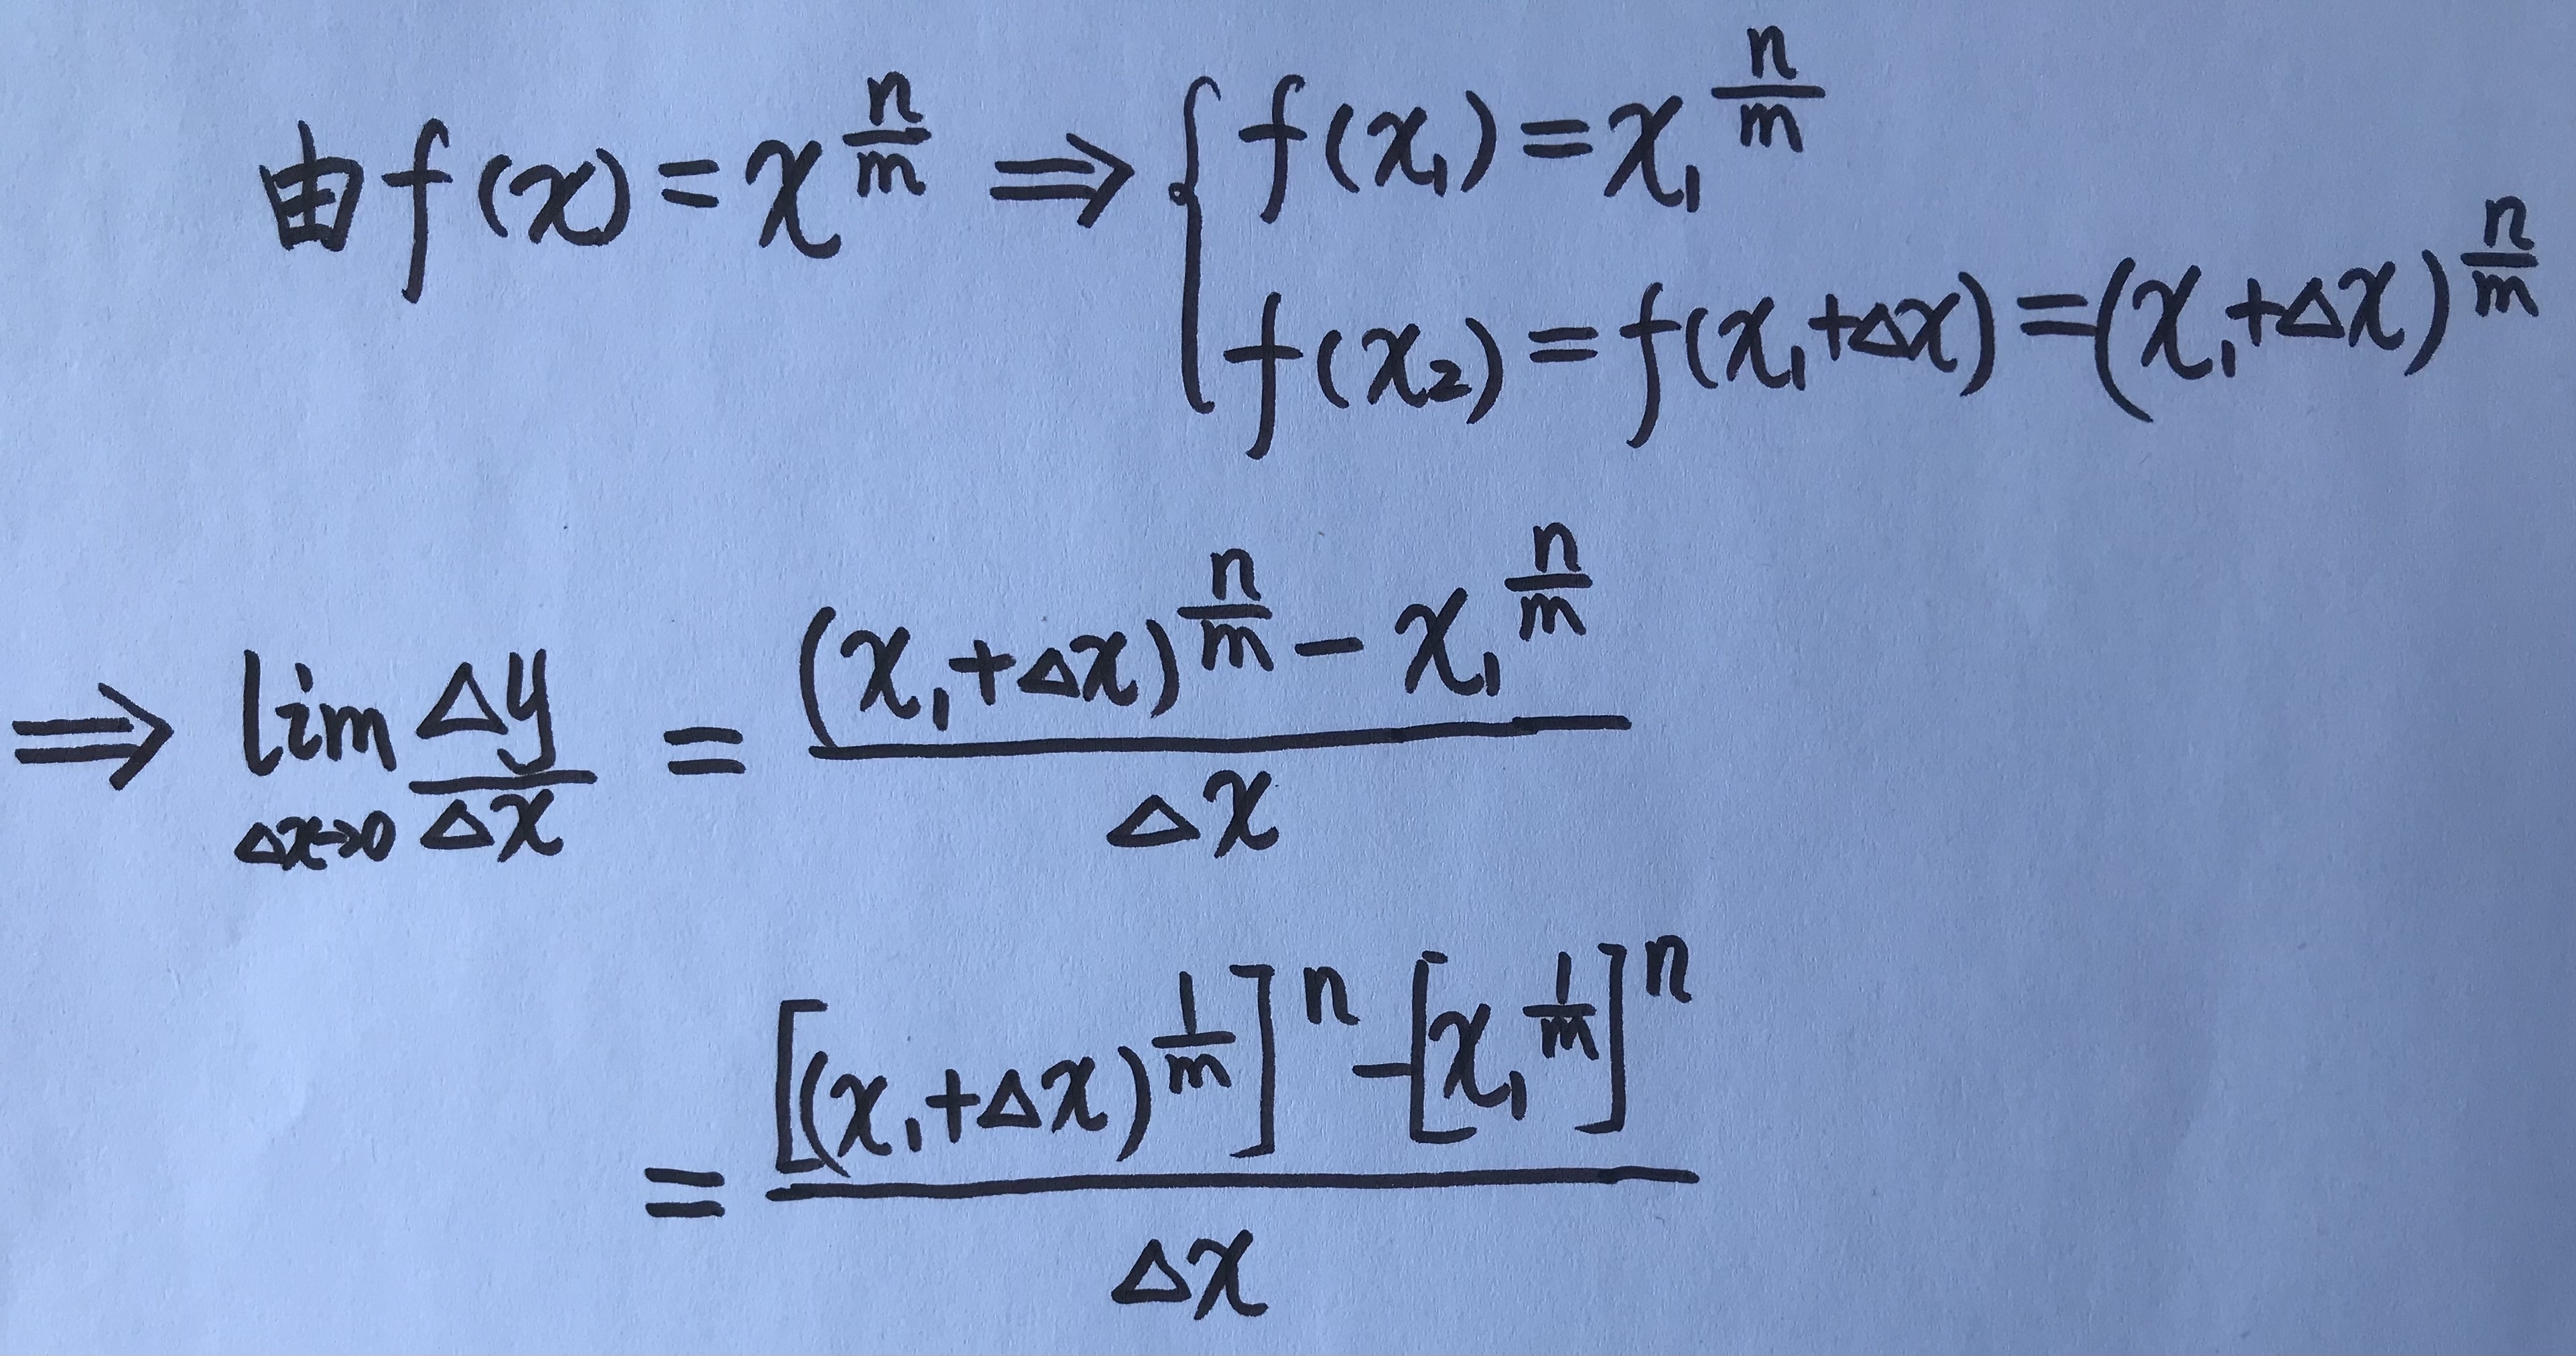 由 f(x) = x^{\frac{n}{m}} ⇒ { f(x₁) = x₁^{\frac{n}{m}}
f(x₂) = f(x₁+Δx) = (x₁+Δx)^{\frac{n}{m}}
⇒ \lim_{Δx→0} \frac{Δy}{Δx} = \frac{(x₁+Δx)^{\frac{n}{m}} - x₁^{\frac{n}{m}}}{Δx}
= \frac{[(x₁+Δx)^{\frac{1}{m}}]^n - [x₁^{\frac{1}{m}}]^n}{Δx}